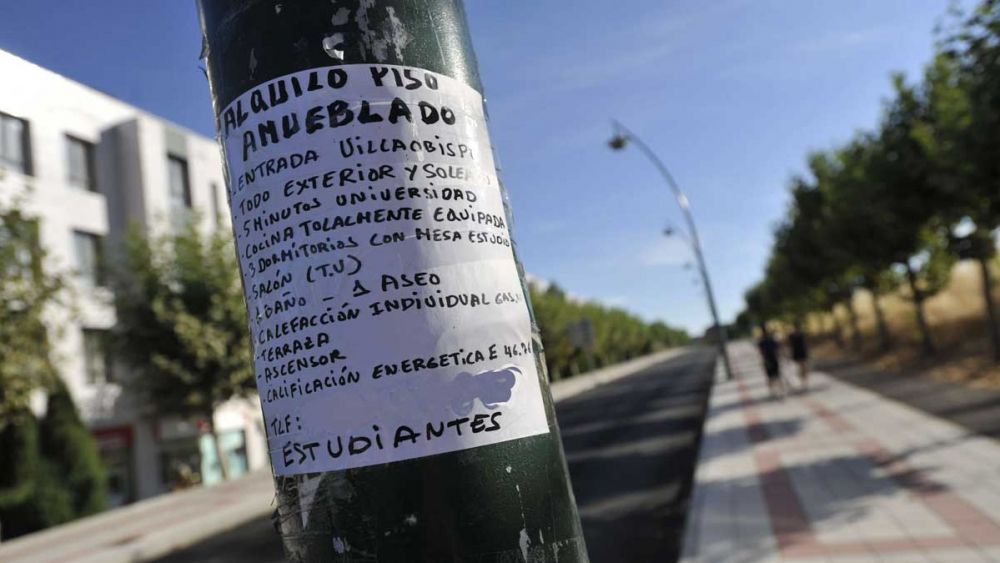 ALQUILO PISO
AMUEBLADO
- ENTRADA VILLAOBISPO
- TODO EXTERIOR Y SOLEADO
- 5 MINUTOS UNIVERSIDAD
- COCINA TOLALMENTE EQUIPADA
- 3 DORMITORIOS CON MESA ESTUDIO
- SALÓN (T.V)
- 1 BAÑO - 1 ASEO
- CALEFACCIÓN INDIVIDUAL GAS
- TERRAZA
- ASCENSOR
- CALIFICACIÓN ENERGETICA E
TLF:
ESTUDIANTES